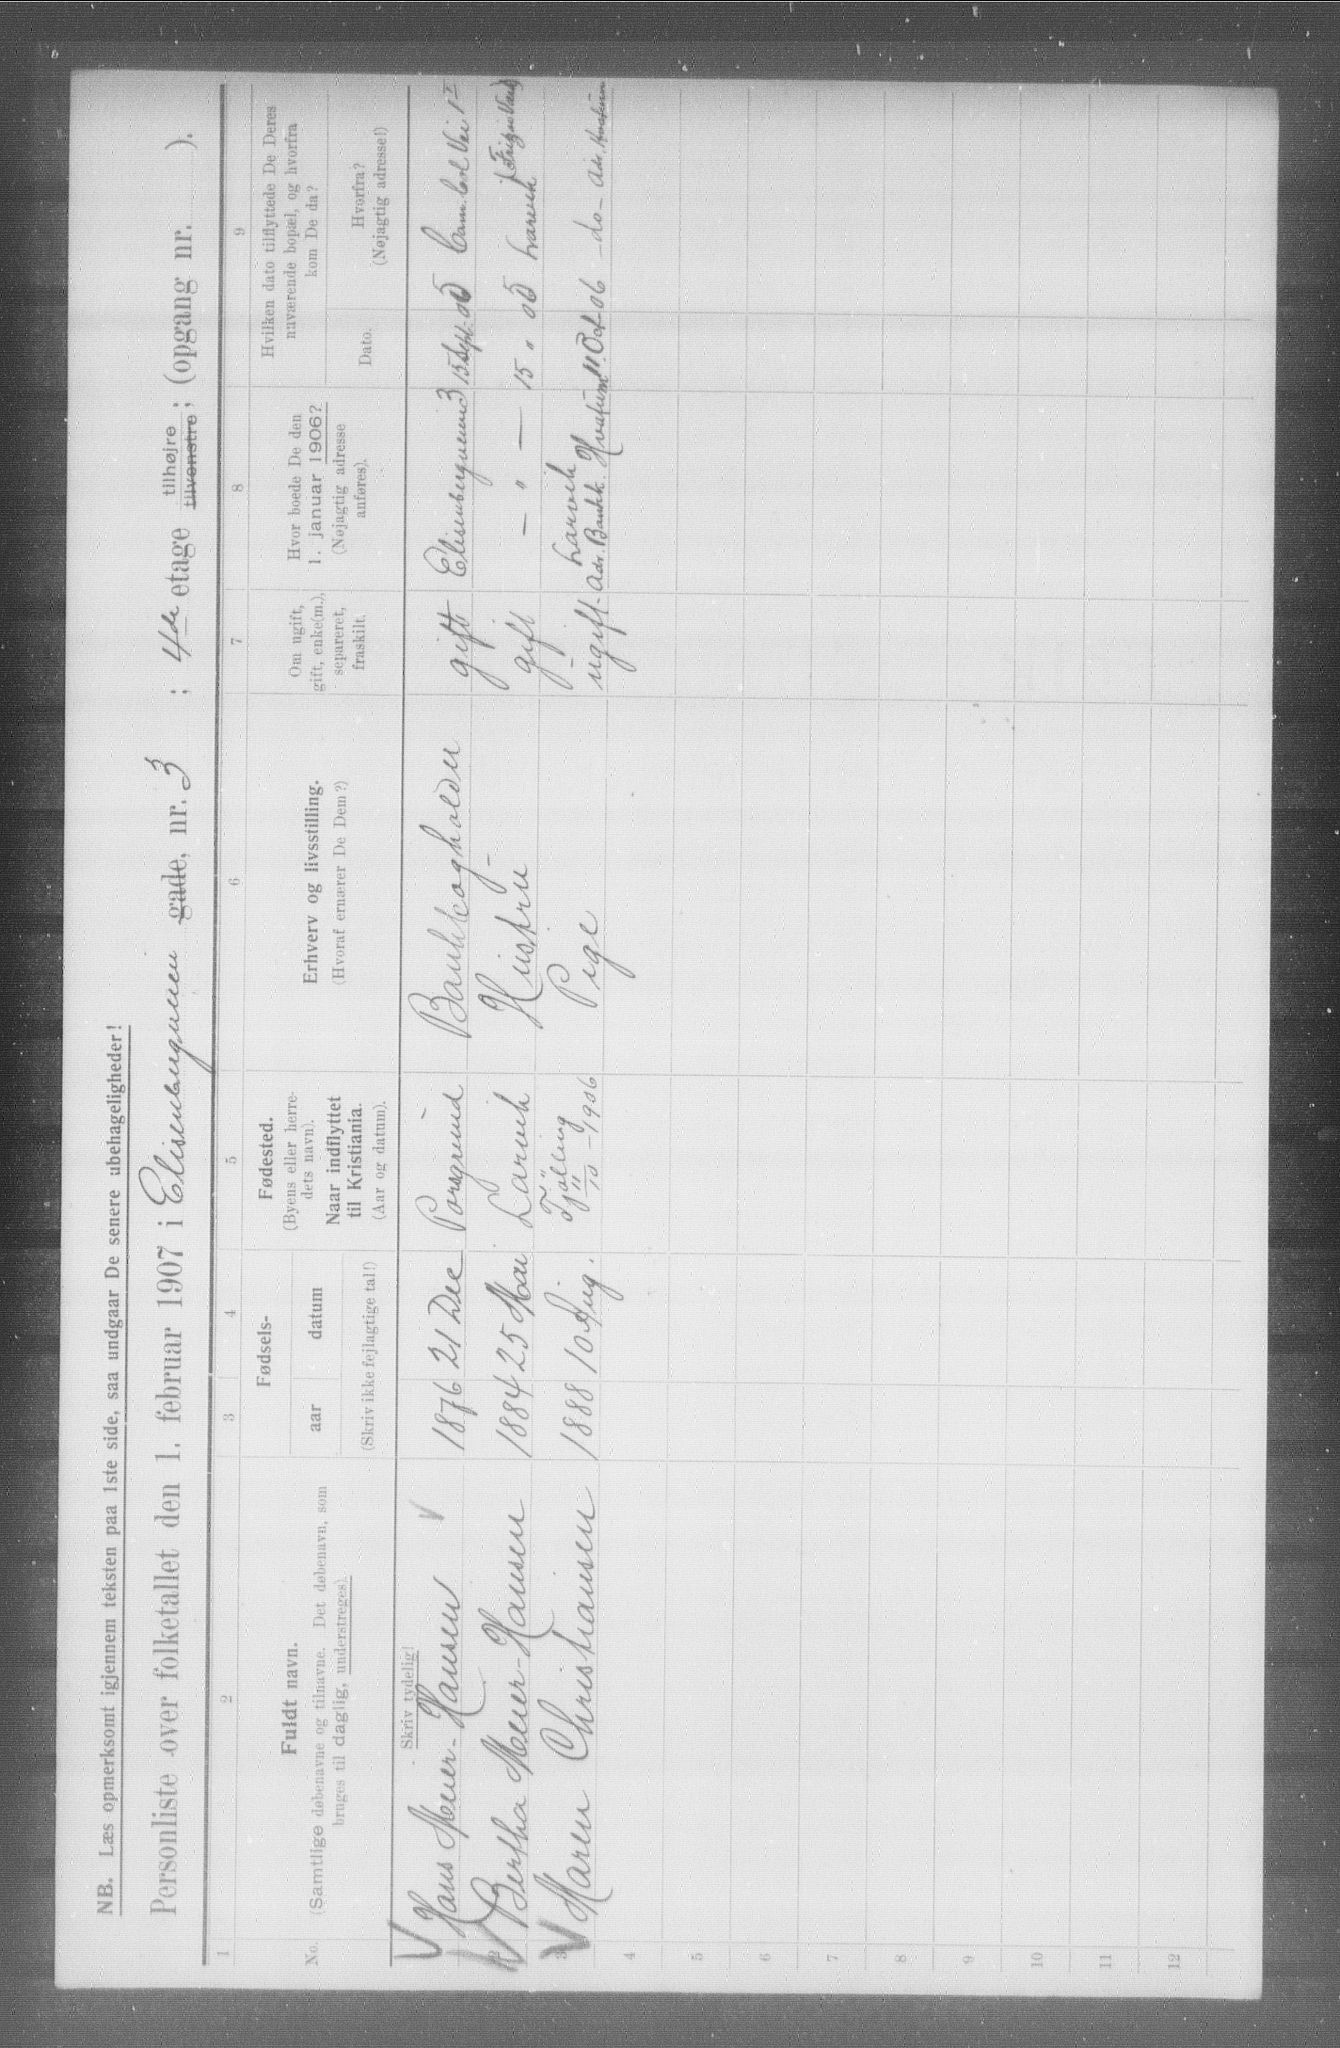 NB. Læs opmerksomt igjennem teksten paa 1ste side, saa undgaar De senere ubehageligheder!
Personliste over folketallet den 1. februar 1907 i Elisenbergveien gade, nr. 3 ; 4de etage tilhøjre tilvenstre ; (opgang nr. ).
1 2 3 4 5 6 7 8 9
No.
Fuldt navn.
(Samtlige døbenavne og tilnavne. Det døbenavn, som
bruges til daglig, understreges).
Skriv tydelig!
Fødsels-
aar datum
(Skriv ikke fejlagtige tal!)
Fødested.
(Byens eller herre-
dets navn).
Naar indflyttet
til Kristiania.
(Aar og datum).
Erhverv og livsstilling.
(Hvoraf ernærer De Dem?)
Om ugift,
gift, enke(m.),
separeret,
fraskilt.
Hvor boede De den
1. januar 1906?
(Nøjagtig adresse
anføres).
Hvilken dato tilflyttede De Deres
nuværende bopæl, og hvorfra
kom De da?
Dato.
Hvorfra?
(Nøjagtig adresse!)
Hans Meier-Hansen 1876 21 Dec Porsgrund Bankbogholder gift Elisenbergveien 3 15 Sept. 05
2 Bertha Meier-Hansen 1884 25 Mai Larvik Hustru gift — " — 15 " 05 Larvik
3 Maren Christiansen 1888 10 Aug. Tjølling 11/10-1906 Pige ugift Larvik adr. Bankk. 11 Oct 06 -do-
4
5
6
7
8
9
10
11
12